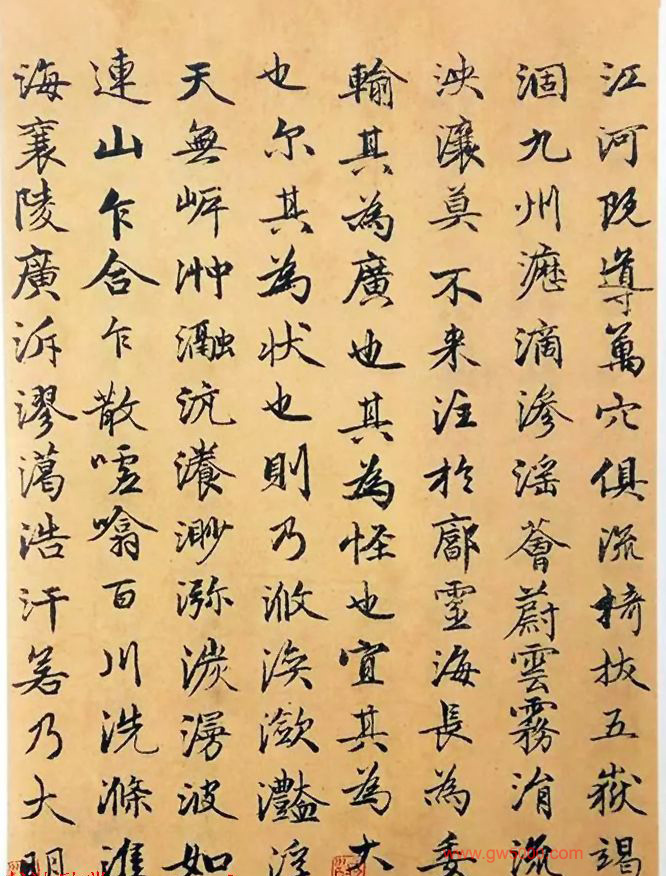 江河既導萬穴俱流掎拔五嶽竭
涸九州瀝滴滲淫薈蔚雲霧涓流
泱瀼莫不来注於廓靈海長為委
輸其為廣也其為怪也宜其為大
也尔其為状也則乃浟湙瀲灔浮
天無岸沖瀜沆瀁渺瀰湠漫波如
連山乍合乍散嘘噏百川洗滌淮
海襄陵廣泝漻㵧浩汗若乃大明